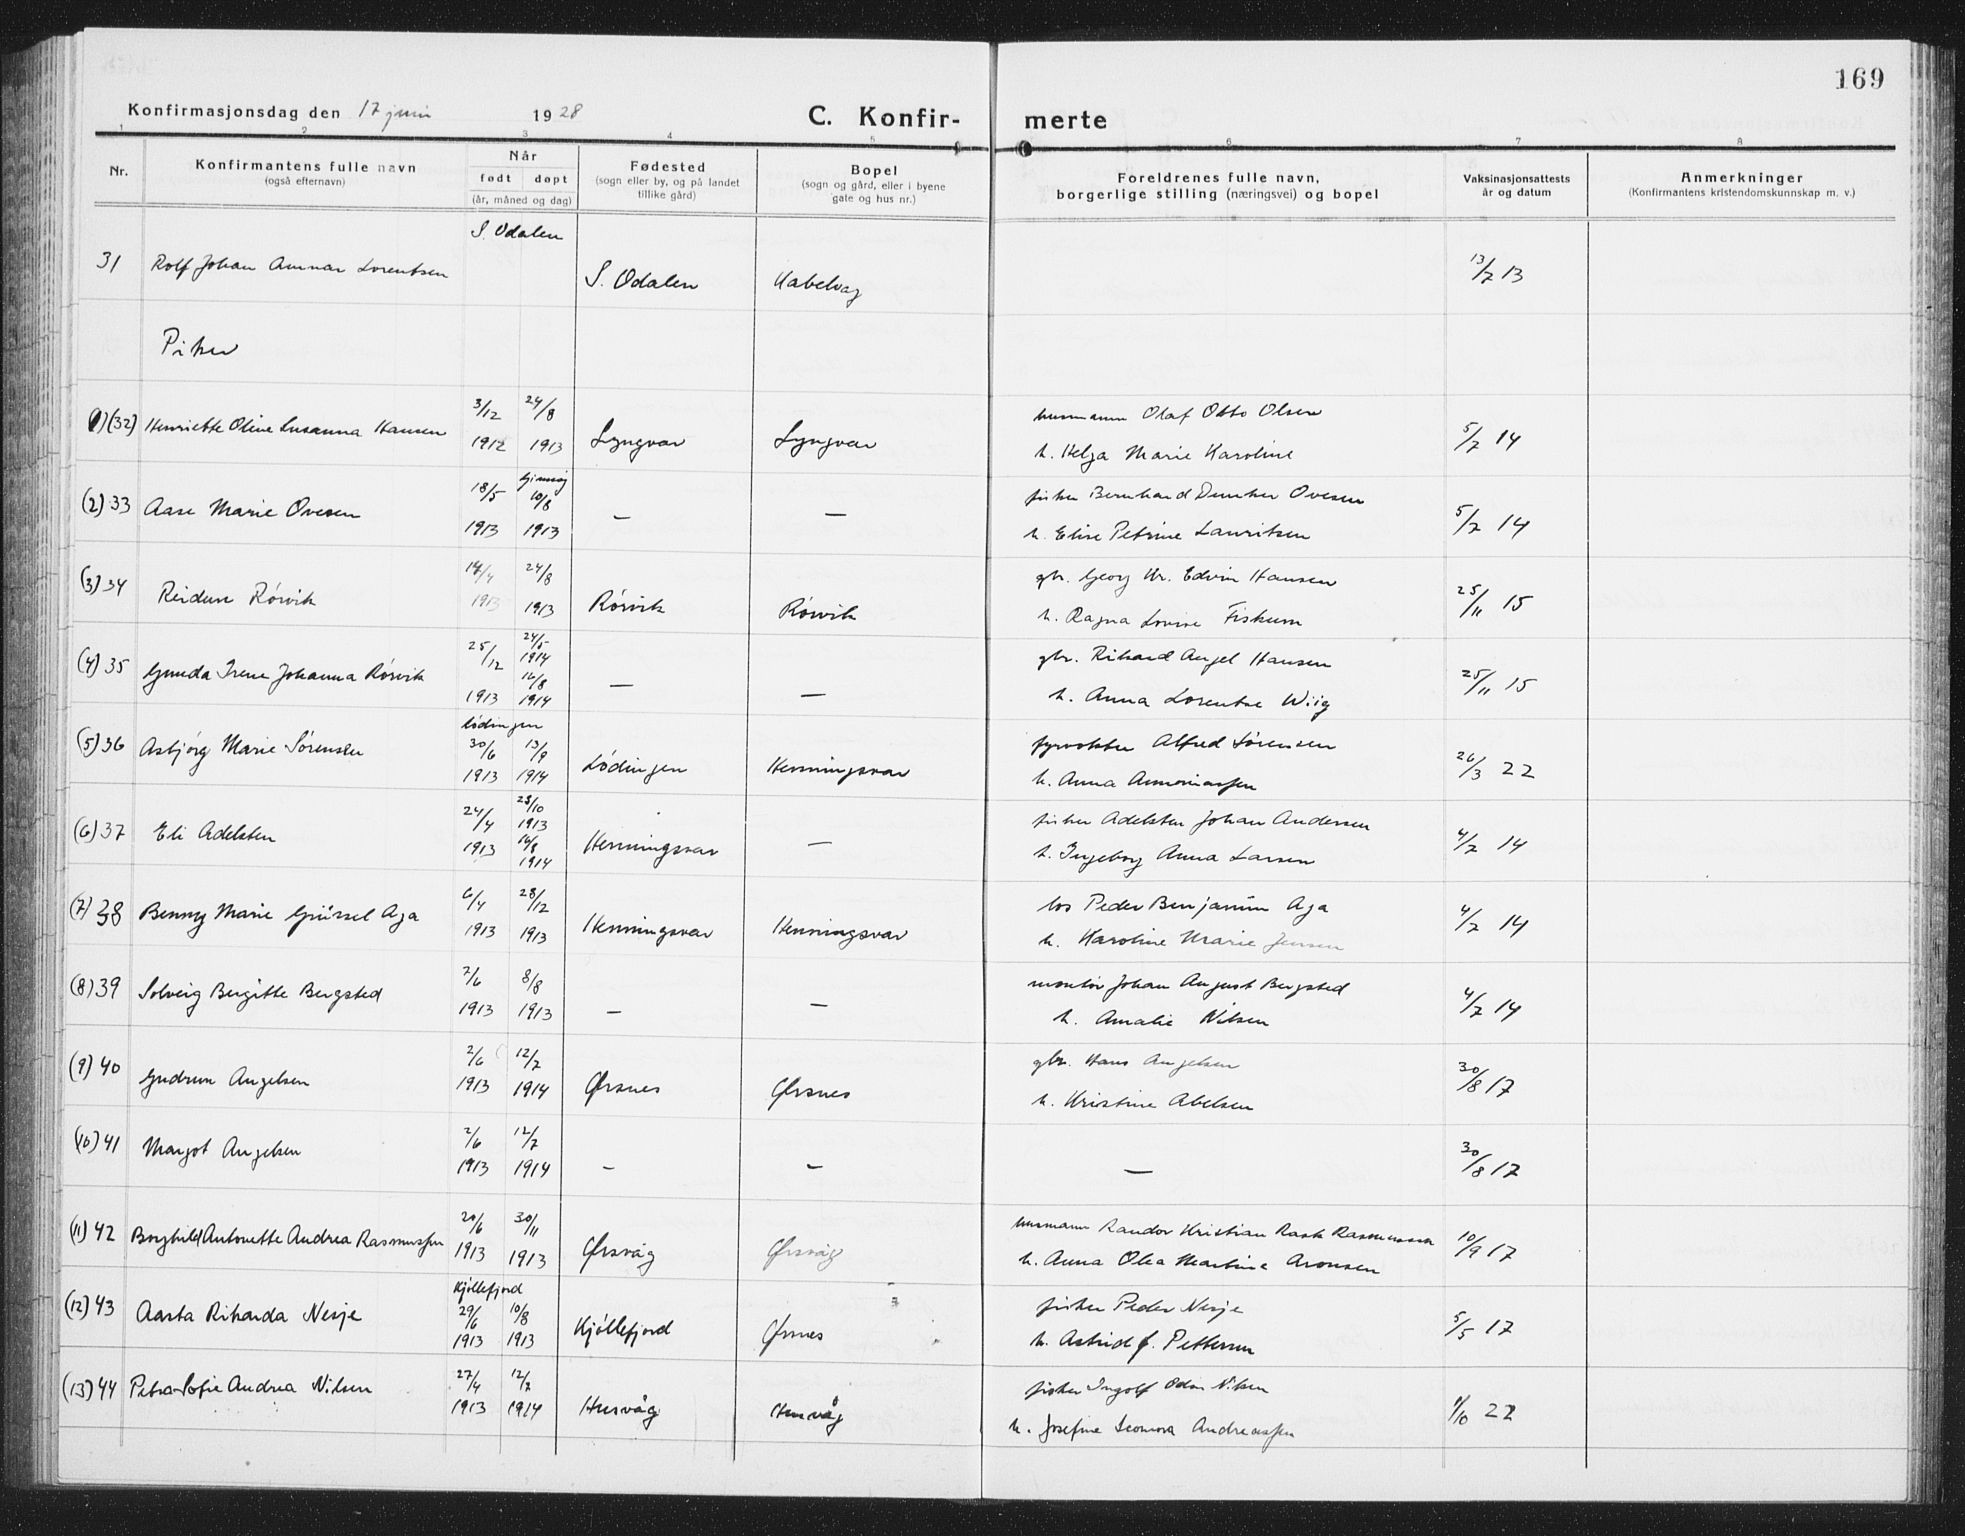 169
Konfirmasjonsdag den 17 juni 1928 C. Konfir- merte
1 2 3 4 5 6 7 8
Nr. Konfirmantens fulle navn (også efternavn) Når født døpt (år, måned og dag) Fødested (sogn eller by, og på landet tillike gård) Bopel (sogn og gård, eller i byene gate og hus nr.) Foreldrenes fulle navn, borgerlige stilling (næringsvei) og bopel Vaksinasjonsattests år og datum Anmerkninger (Konfirmantens kristendomskunnskap m. v.)
S. Odalen
31 Rolf Johan Lorentsen S. Odalen Kabelvåg 13/7 13
Piker
1) (32) Henriette Oline Susanna Hansen 3/12 1912 24/8 1913 Lyngvær Lyngvær husmann Olaf Otto Olsen
h. Helga Marie Karoline 5/7 14
(2) 33 Aase Marie Ovesen 18/5 1913 Gimsøy 10/8 1913 — — fisker Bernhard Ovesen
h. Elise Petrine Lauritsen 5/7 14
(3) 34 Reidun Rörvik 14/4 1913 24/8 1913 Rörvik Rörvik gbr. Georg Kr. Edvin Hansen
h. Ragna Lovise Fiskum 25/11 15
(4) 35 Gunda Irene Johanna Rörvik 25/12 1913 24/5 1914 16/8 1914 — — gbr. Rikard Angel Hansen
h. Anna Lorentse Wiig 25/11 15
(5) 36 Asbjörg Marie Sörensen Lödingen 30/6 1913 13/9 1914 Lödingen Henningsvær fyrvokter Alfred Sörensen
h. Anna 26/3 22
(6) 37 Eli Adelsten 24/4 1913 28/10 1913 16/8 1914 Henningsvær — fisker Adelsten Johan Andersen
h. Ingeborg Anna Larsen 4/7 14
(7) 38 Benny Marie Aga 6/4 1913 28/12 1913 Henningsvær Henningsvær los Peder Benjamin Aga
h. Karoline Marie Jensen 4/7 14
(8) 39 Solveig Bergitte Bergsted 7/6 1913 8/8 1913 — — montör Johan August Bergsted
h. Amalie Nilsen 4/7 14
(9) 40 Gudrun Angelsen 2/6 1913 12/7 1914 Ørsnes Ørsnes gbr. Hans Angelsen
h. Kristine Abelsen 30/8 17
(10) 41 Margot Angelsen 2/6 1913 12/7 1914 — — — 30/8 17
(11) 42 Borghild Antonette Andrea Rasmussen 20/6 1913 30/11 1913 Ørsvåg Ørsvåg husmann Randor Kristian Rask Rasmussen
h. Anna Olea Martine Aronsen 10/9 17
(12) 43 Aasta Rikarda Nesje Kjöllefjord 29/6 1913 10/8 1913 Kjöllefjord Ørsnes fisker Peder Nesje
h. Astrid J. Pettersen 5/5 17
(13) 44 Petra Sofie Andrea Nilsen 27/4 1913 12/7 1914 Husvåg Husvåg fisker Ingolf Odin Nilsen
h. Josefine Leonora Andreassen 1/10 22